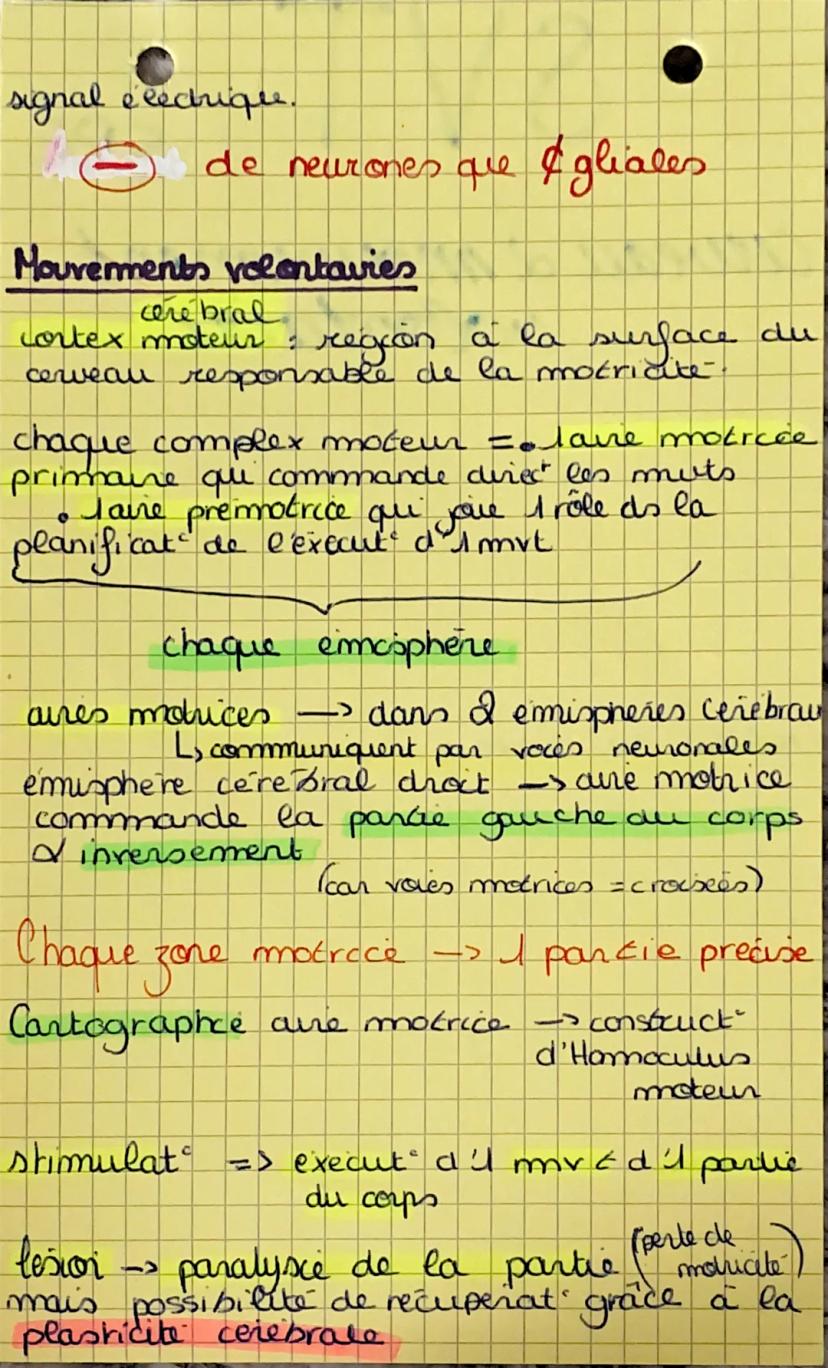 signal électrique.
⊖ de neurones que ¢ gliales
Mouvements volontaires
cérébral
cortex moteur : région à la surface du
cerveau responsable de la motricité.
chaque complex moteur = • 1 aire motrice
primaire qui commande direct les mvts
• 1 aire prémotrice qui joue 1 rôle ds la
planificat° de l'execut° d'1 mvt
chaque émisphère
aires motrices → dans 2 émisphères cérébrau
↳ communiquent par voies neuronales
émisphère cérébral droit → aire motrice
commande la partie gauche du corps
& inversement
(car voies motrices = croisées)
Chaque zone motrice → 1 partie précise
Cartographie aire motrice → construct°
d'Homoculus
moteur
stimulat° => execut° d'1 mvt d'1 partie
du corps
lésion → paralysie de la partie (perte de
motricité)
mais possibilité de récupérat° grâce à la
plasticité cérébrale